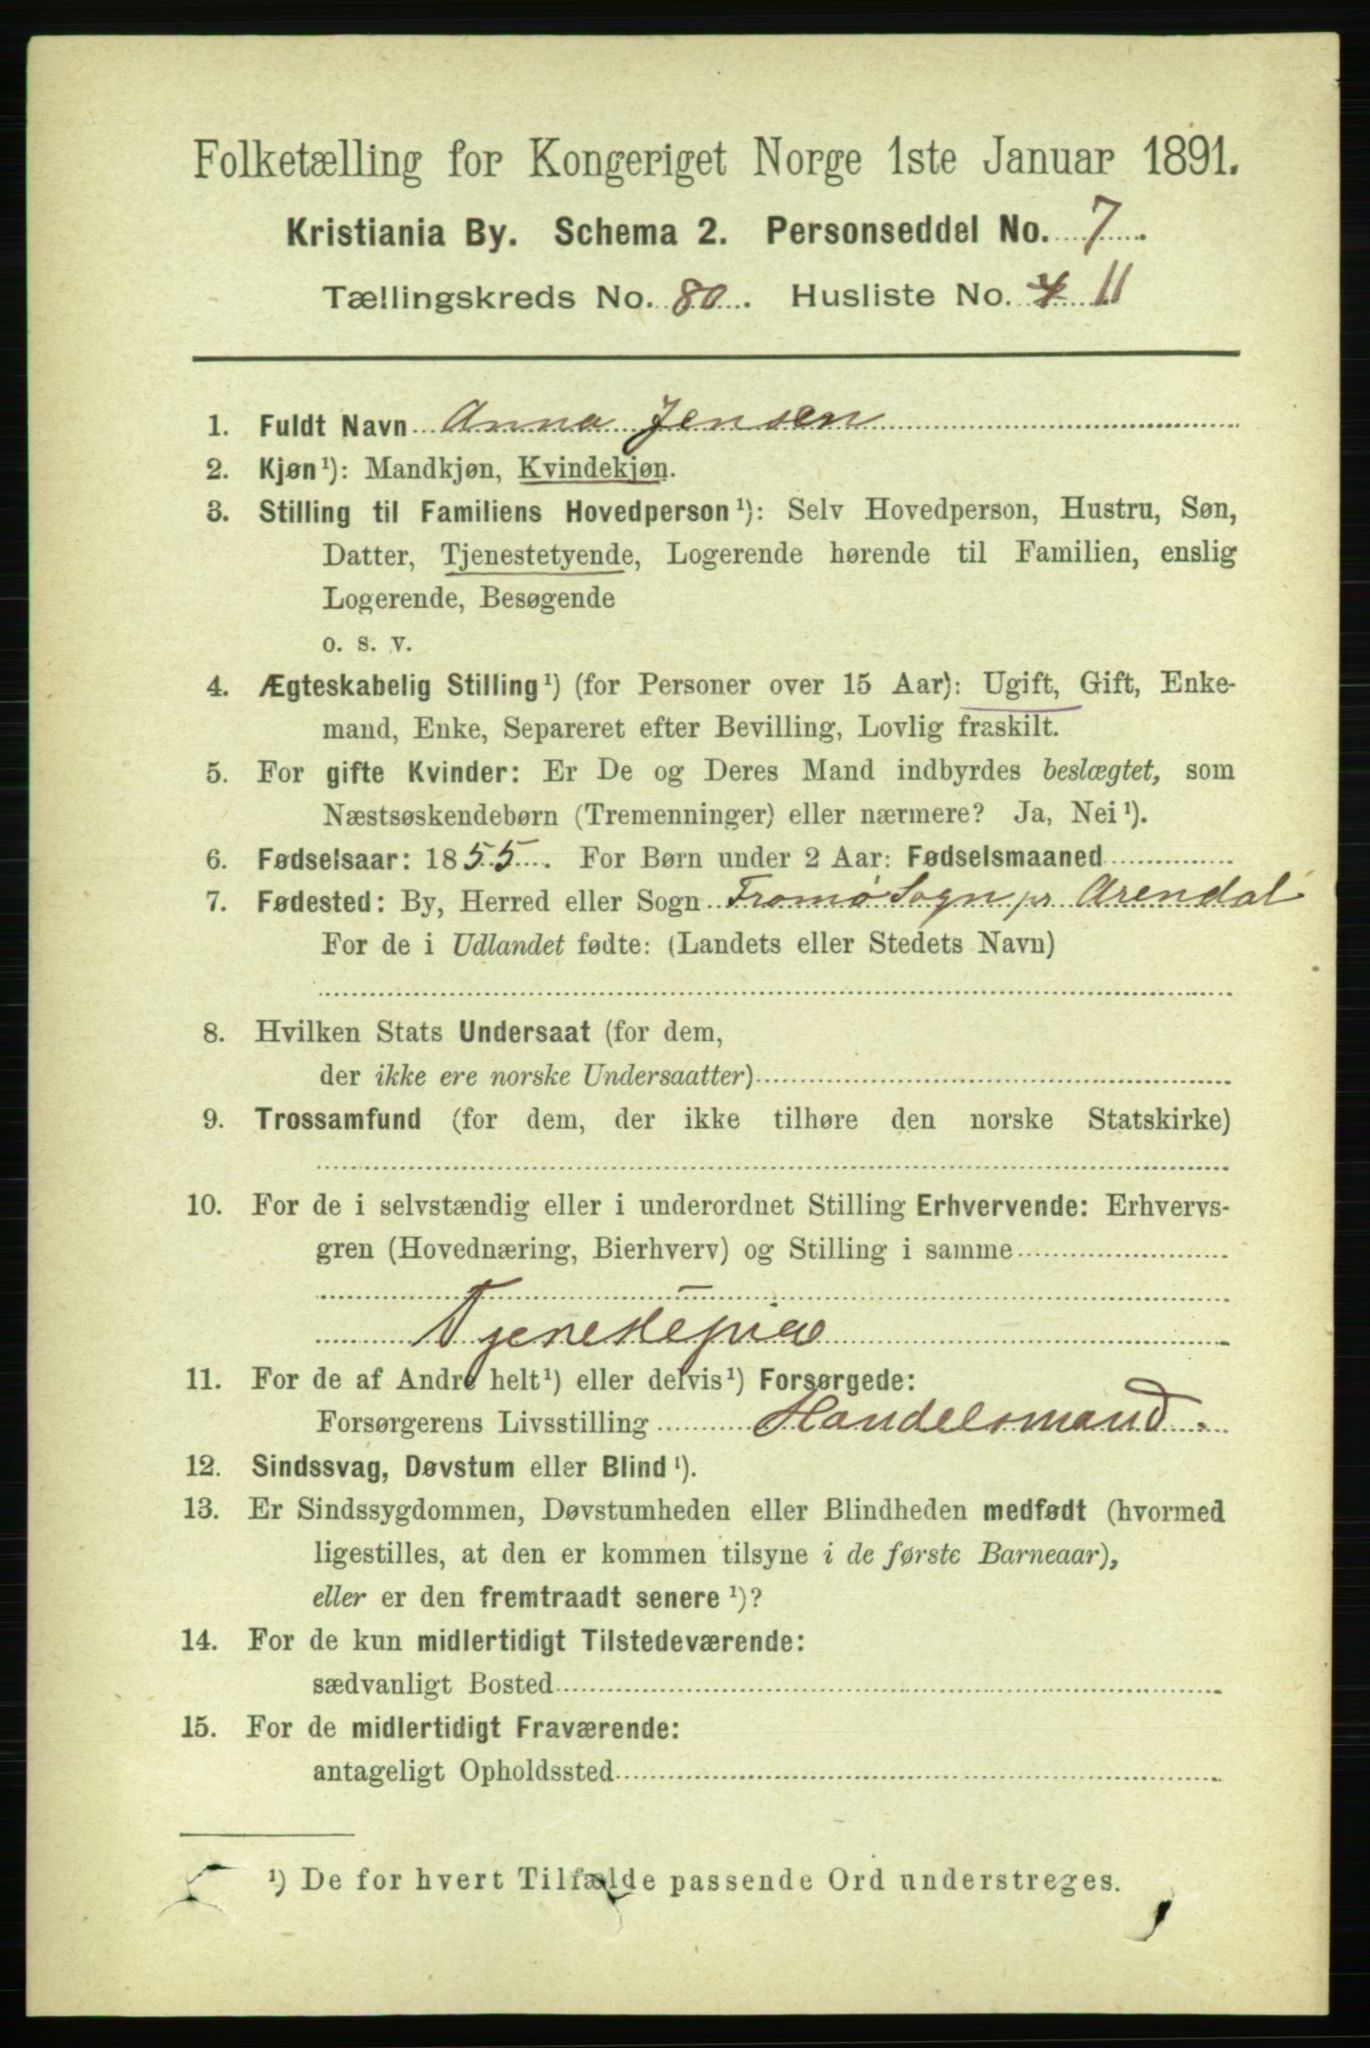 Folketælling for Kongeriget Norge 1ste Januar 1891.
Kristiania By. Schema 2. Personseddel No. 7.
Tællingskreds No. 80. Husliste No. 4 11
1. Fuldt Navn Anna Jensen
2. Kjøn¹): Mandkjøn, Kvindekjøn.
3. Stilling til Familiens Hovedperson¹): Selv Hovedperson, Hustru, Søn,
Datter, Tjenestetyende, Logerende hørende til Familien, enslig
Logerende, Besøgende
o. s. v.
4. Ægteskabelig Stilling¹) (for Personer over 15 Aar): Ugift, Gift, Enke-
mand, Enke, Separeret efter Bevilling, Lovlig fraskilt.
5. For gifte Kvinder: Er De og Deres Mand indbyrdes beslægtet, som
Næstsøskendebørn (Tremenninger) eller nærmere? Ja, Nei¹).
6. Fødselsaar: 1855. For Børn under 2 Aar: Fødselsmaaned
7. Fødested: By, Herred eller Sogn Tromø Sogn pr Arendal
For de i Udlandet fødte: (Landets eller Stedets Navn)
8. Hvilken Stats Undersaat (for dem,
der ikke ere norske Undersaatter)
9. Trossamfund (for dem, der ikke tilhøre den norske Statskirke)
10. For de i selvstændig eller i underordnet Stilling Erhvervende: Erhvervs-
gren (Hovednæring, Bierhverv) og Stilling i samme
Tjenestepige
11. For de af Andre helt¹) eller delvis¹) Forsørgede:
Forsørgerens Livsstilling Handelsmand.
12. Sindssvag, Døvstum eller Blind¹).
13. Er Sindssygdommen, Døvstumheden eller Blindheden medfødt (hvormed
ligestilles, at den er kommen tilsyne i de første Barneaar),
eller er den fremtraadt senere¹)?
14. For de kun midlertidigt Tilstedeværende:
sædvanligt Bosted
15. For de midlertidigt Fraværende:
antageligt Opholdssted
¹) De for hvert Tilfælde passende Ord understreges.